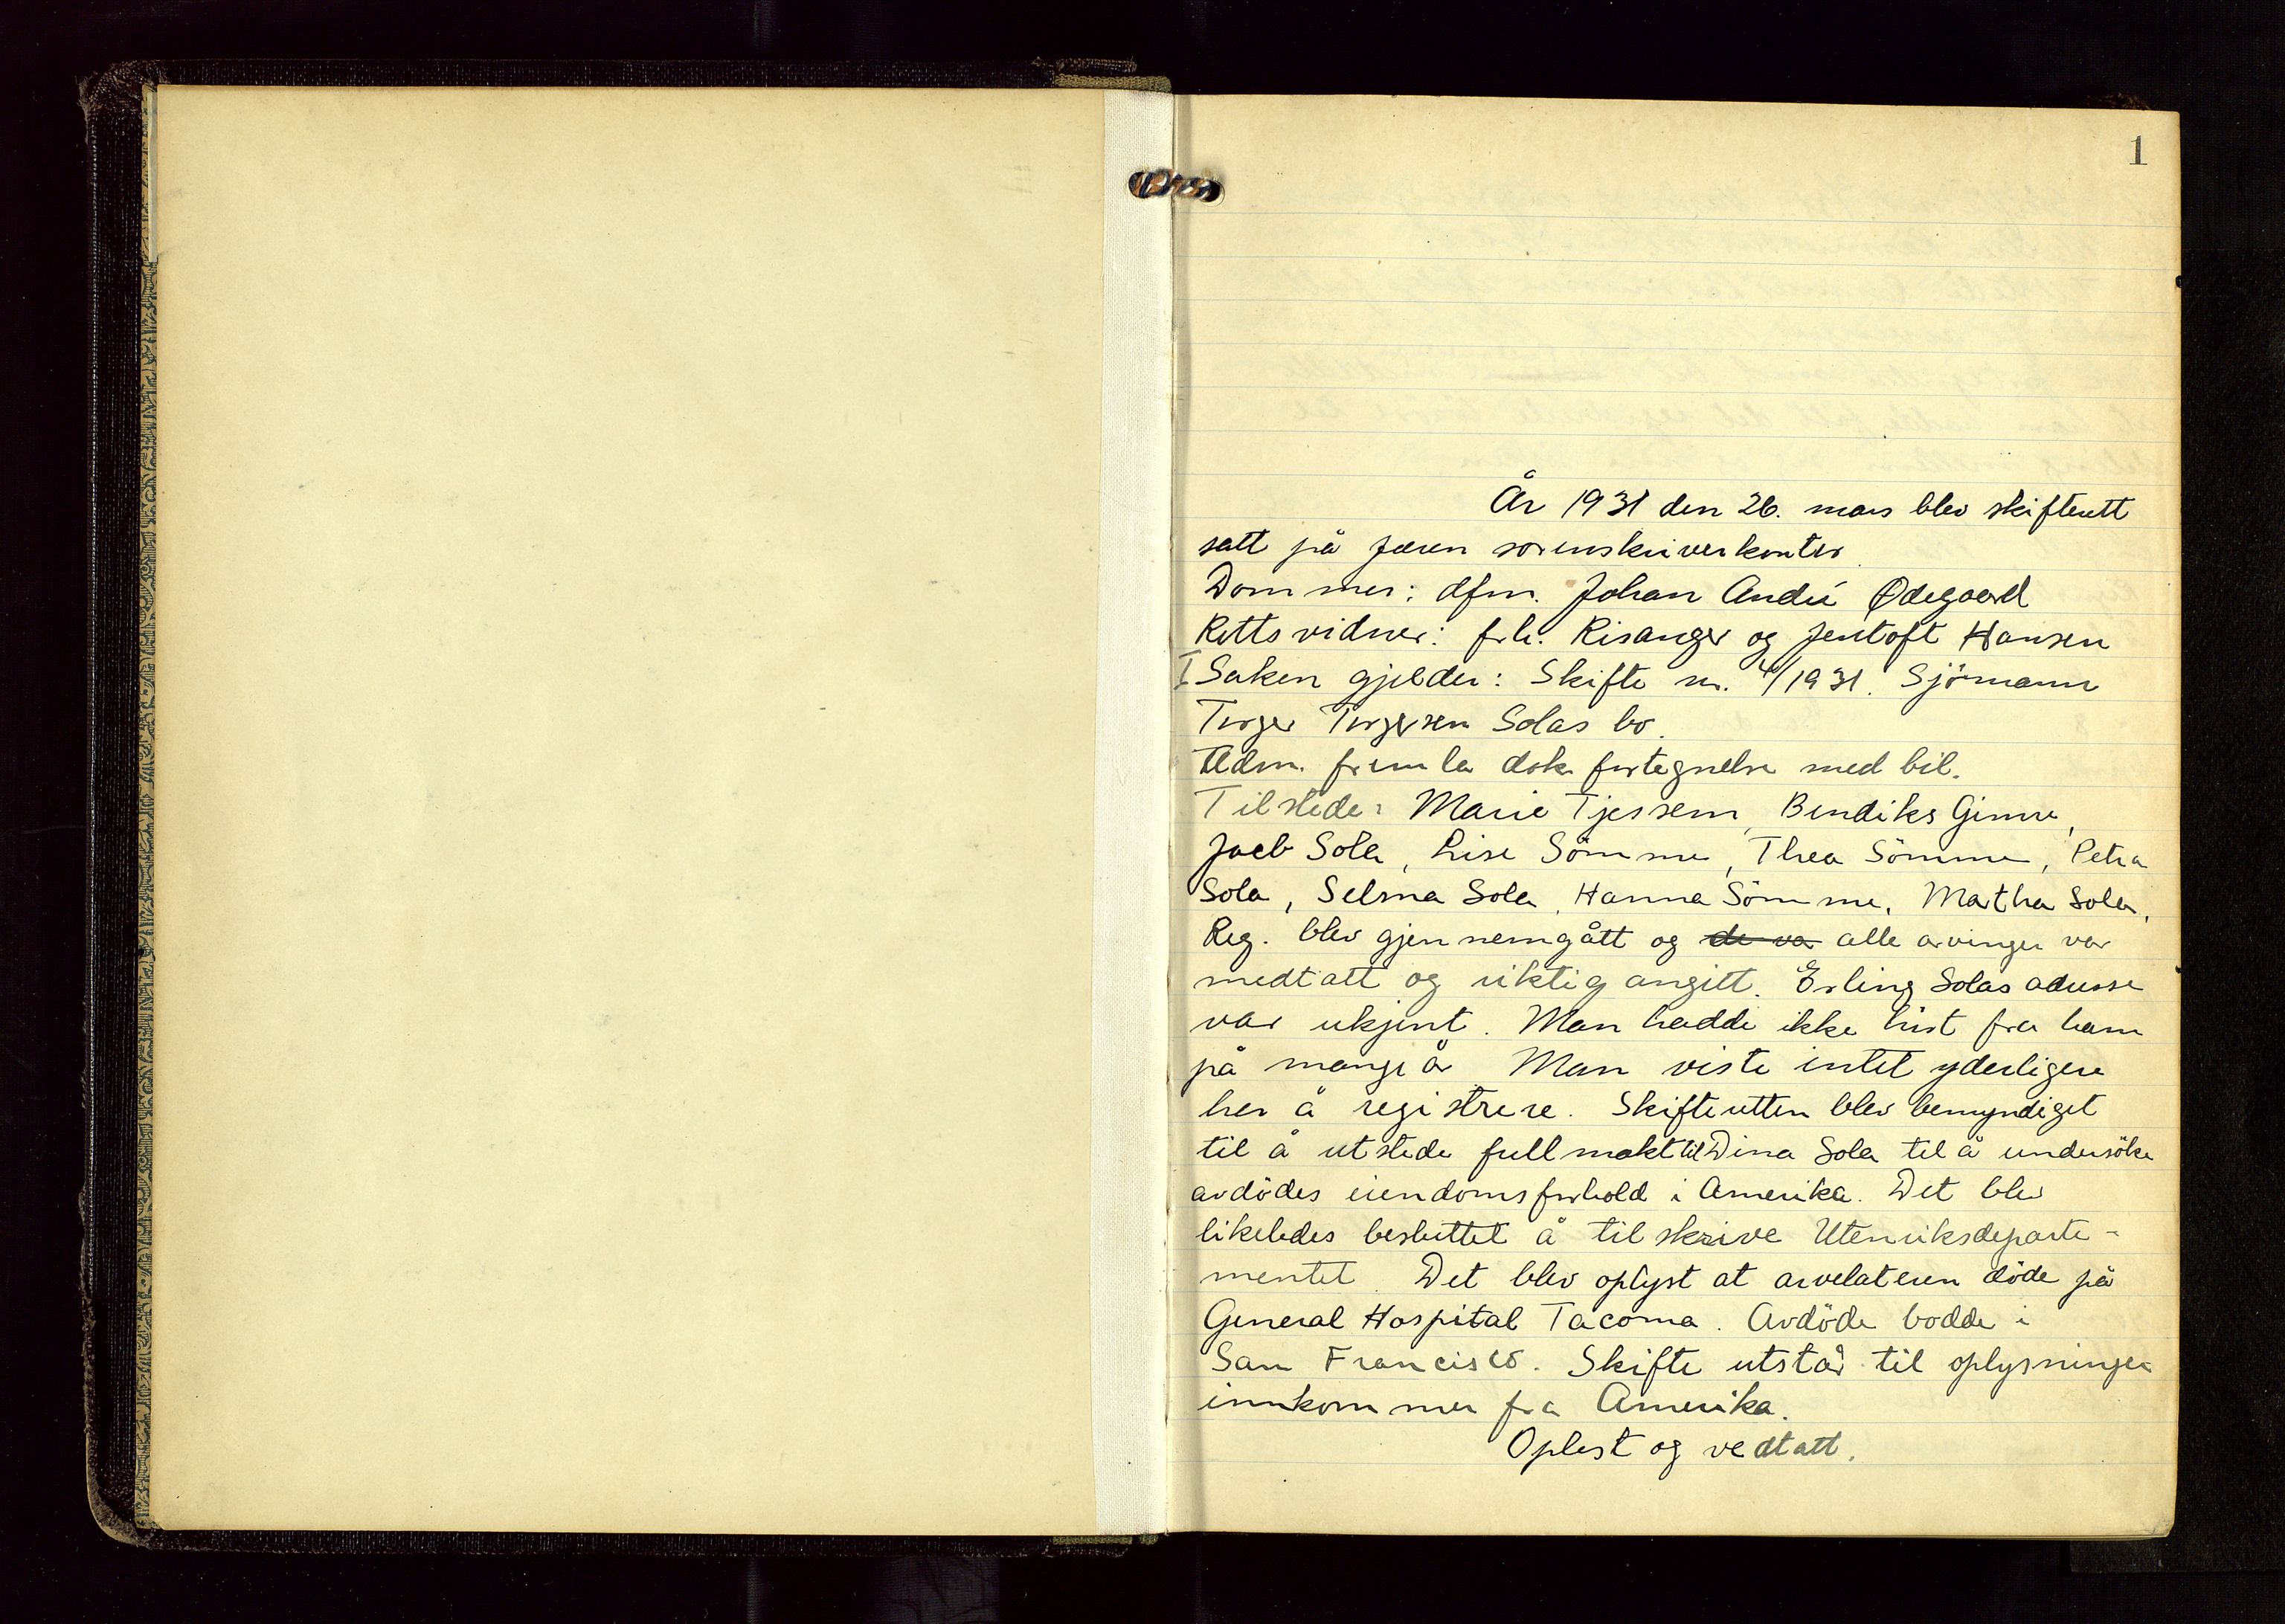 1
År 1931 den 26. mars blev skifterett
satt på Jæren sorenskriverkontor
Dommer: dfm. Johan André Ødegaard
Rettsvidner: frk. Risanger og Jentoft Hansen
I Saken gjelder: Skifte nr. 4/1931. Sjömann
Torger Torgersen Solas bo.
Adm. fremla dok. fortegnelse med bil.
Tilstede: Marie Tjessem, Bendiks Gimre,
Jacb Sola, Lise Sömme, Thea Sömme, Petra
Sola, Selma Sola, Hanna Sömme, Martha Sola.
Reg. blev gjennemgått og de var alle arvinger var
medtatt og riktig angitt. Erling Solas adresse
var ukjent. Man hadde ikke hört fra ham
på mange år Man viste intet yderligere
her å registrere. Skifteretten blev bemyndiget
til å utstede fullmakt til Dina Sola til å undersöke
avdödes eiendomsforhold i Amerika. Det blev
likeledes besluttet å tilskrive Utenriksdeparte-
mentet. Det blev oplyst at arvelateren döde på
General Hospital Tacoma. Avdöde bodde i
San Francisco. Skifte utstår til oplysninger
innkommer fra Amerika.
Oplest og vedtatt.